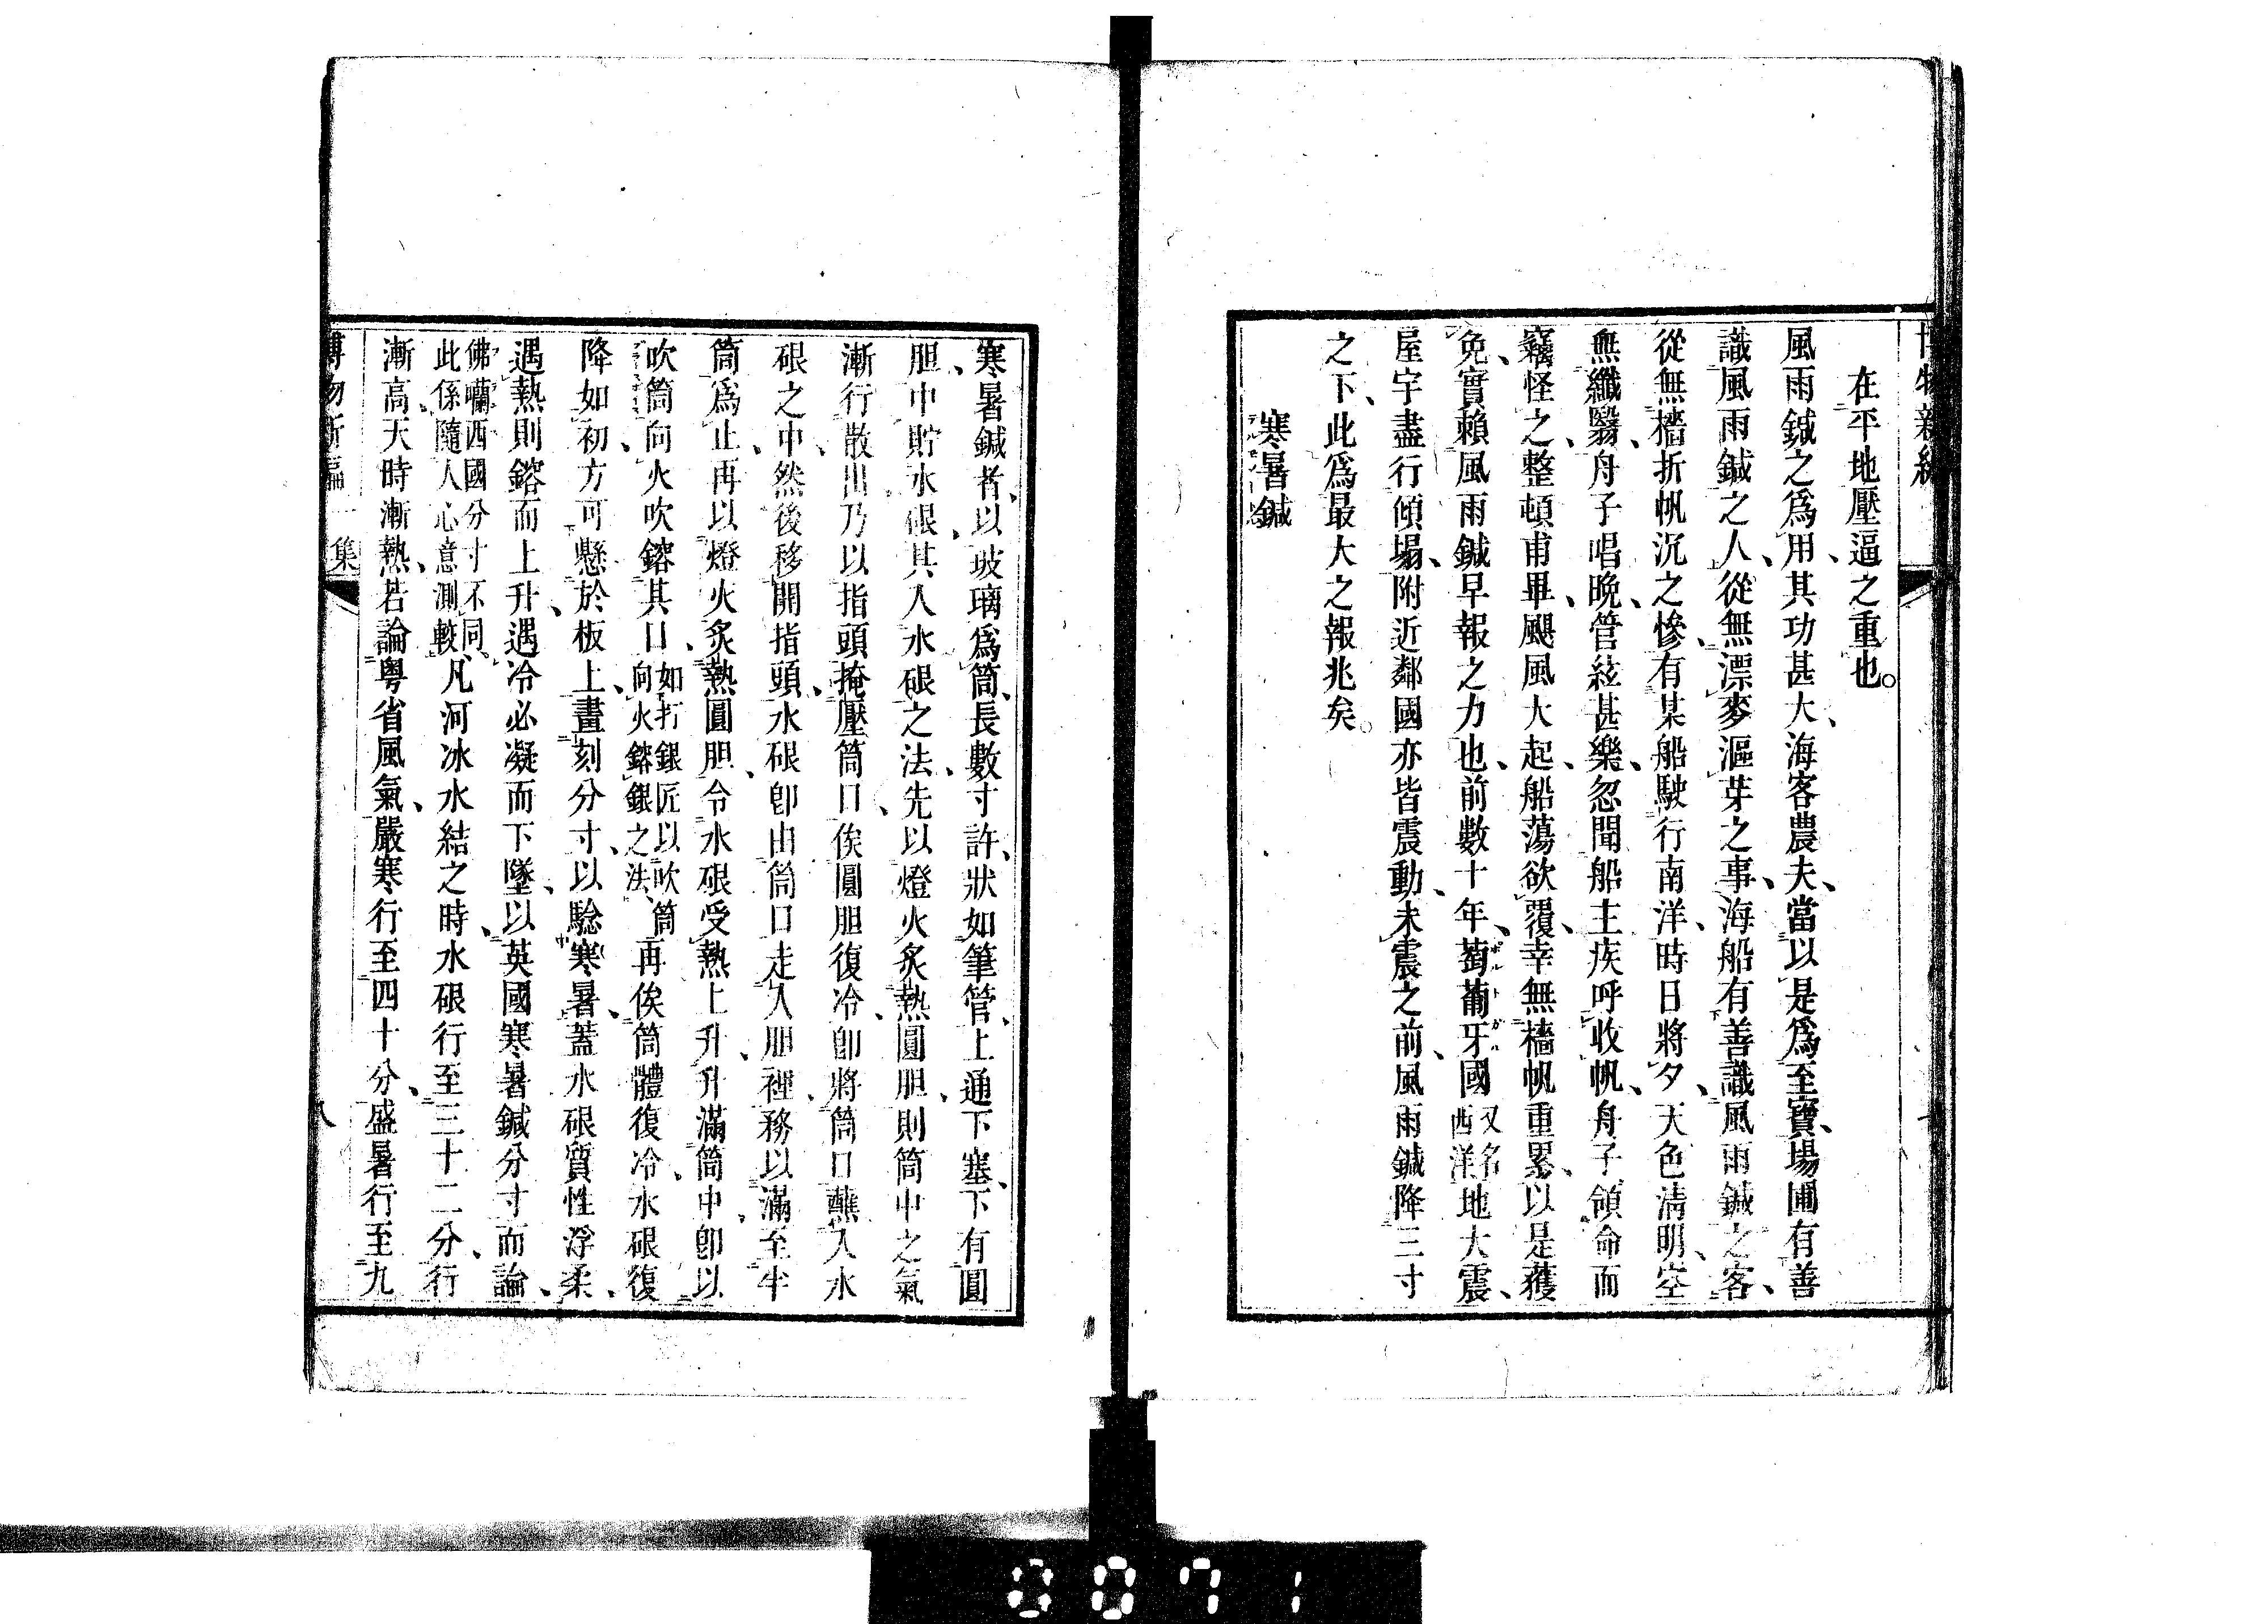 博物新編
七
在平地壓逼之重也。
風雨鍼之爲用、其功甚大、海客農夫、當以是爲至寶、場圃有善
識風雨鍼之人、從無漂麥漚芽之事、海船有善識風雨鍼之客、
從無檣折帆沉之慘、有某船駛行南洋、時日將夕、天色淸明、空
無纖翳、舟子唱晩、管絃甚樂、忽聞船主疾呼收帆、舟子領命而
竊怪之、整頓甫畢、颶風大起、船蕩欲覆、幸無檣帆重累、以是獲
免、實賴風雨鍼早報之力也、前數十年、葡萄牙國又名西洋地大震、
屋宇盡行傾塌、附近鄰國亦皆震動、未震之前、風雨鍼降三寸
之下、此爲最大之報兆矣。
寒暑鍼
寒暑鍼者、以玻璃爲筒、長數寸許、狀如筆管、上通下塞、下有圓
胆、胆中貯水硍、其入水硍之法、先以燈火炙熱圓胆、則筒中之氣
漸行散出、乃以指頭掩壓筒口、俟圓胆復冷、卽將筒口蘸入水
硍之中、然後移開指頭、水硍卽由筒口走入胆裡、務以滿至半
筒爲止、再以燈火炙熱圓胆、令水硍受熱上升、升滿筒中、卽以
吹筒向火吹鎔其口、如打銀匠以吹筒向火鎔銀之法、再俟筒體復冷、水硍復
降如初、方可懸於板上、畫刻分寸、以驗寒暑、蓋水硍質性浮柔、
遇熱則鎔而上升、遇冷必凝而下墜、以英國寒暑鍼分寸而論、
佛囒西國分寸不同、此係隨人心意測較、凡河冰水結之時、水硍行至三十二分、行
漸高、天時漸熱、若論粵省風氣、嚴寒行至四十分、盛暑行至九
博物新編 一集
八
0071